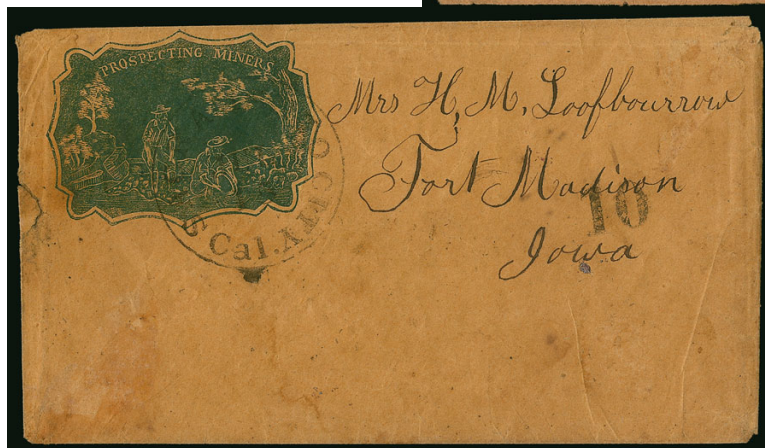 PROSPECTING MINERS
Mrs H. M. Loofbourrow
Fort Madison
10
Iowa
Cal.